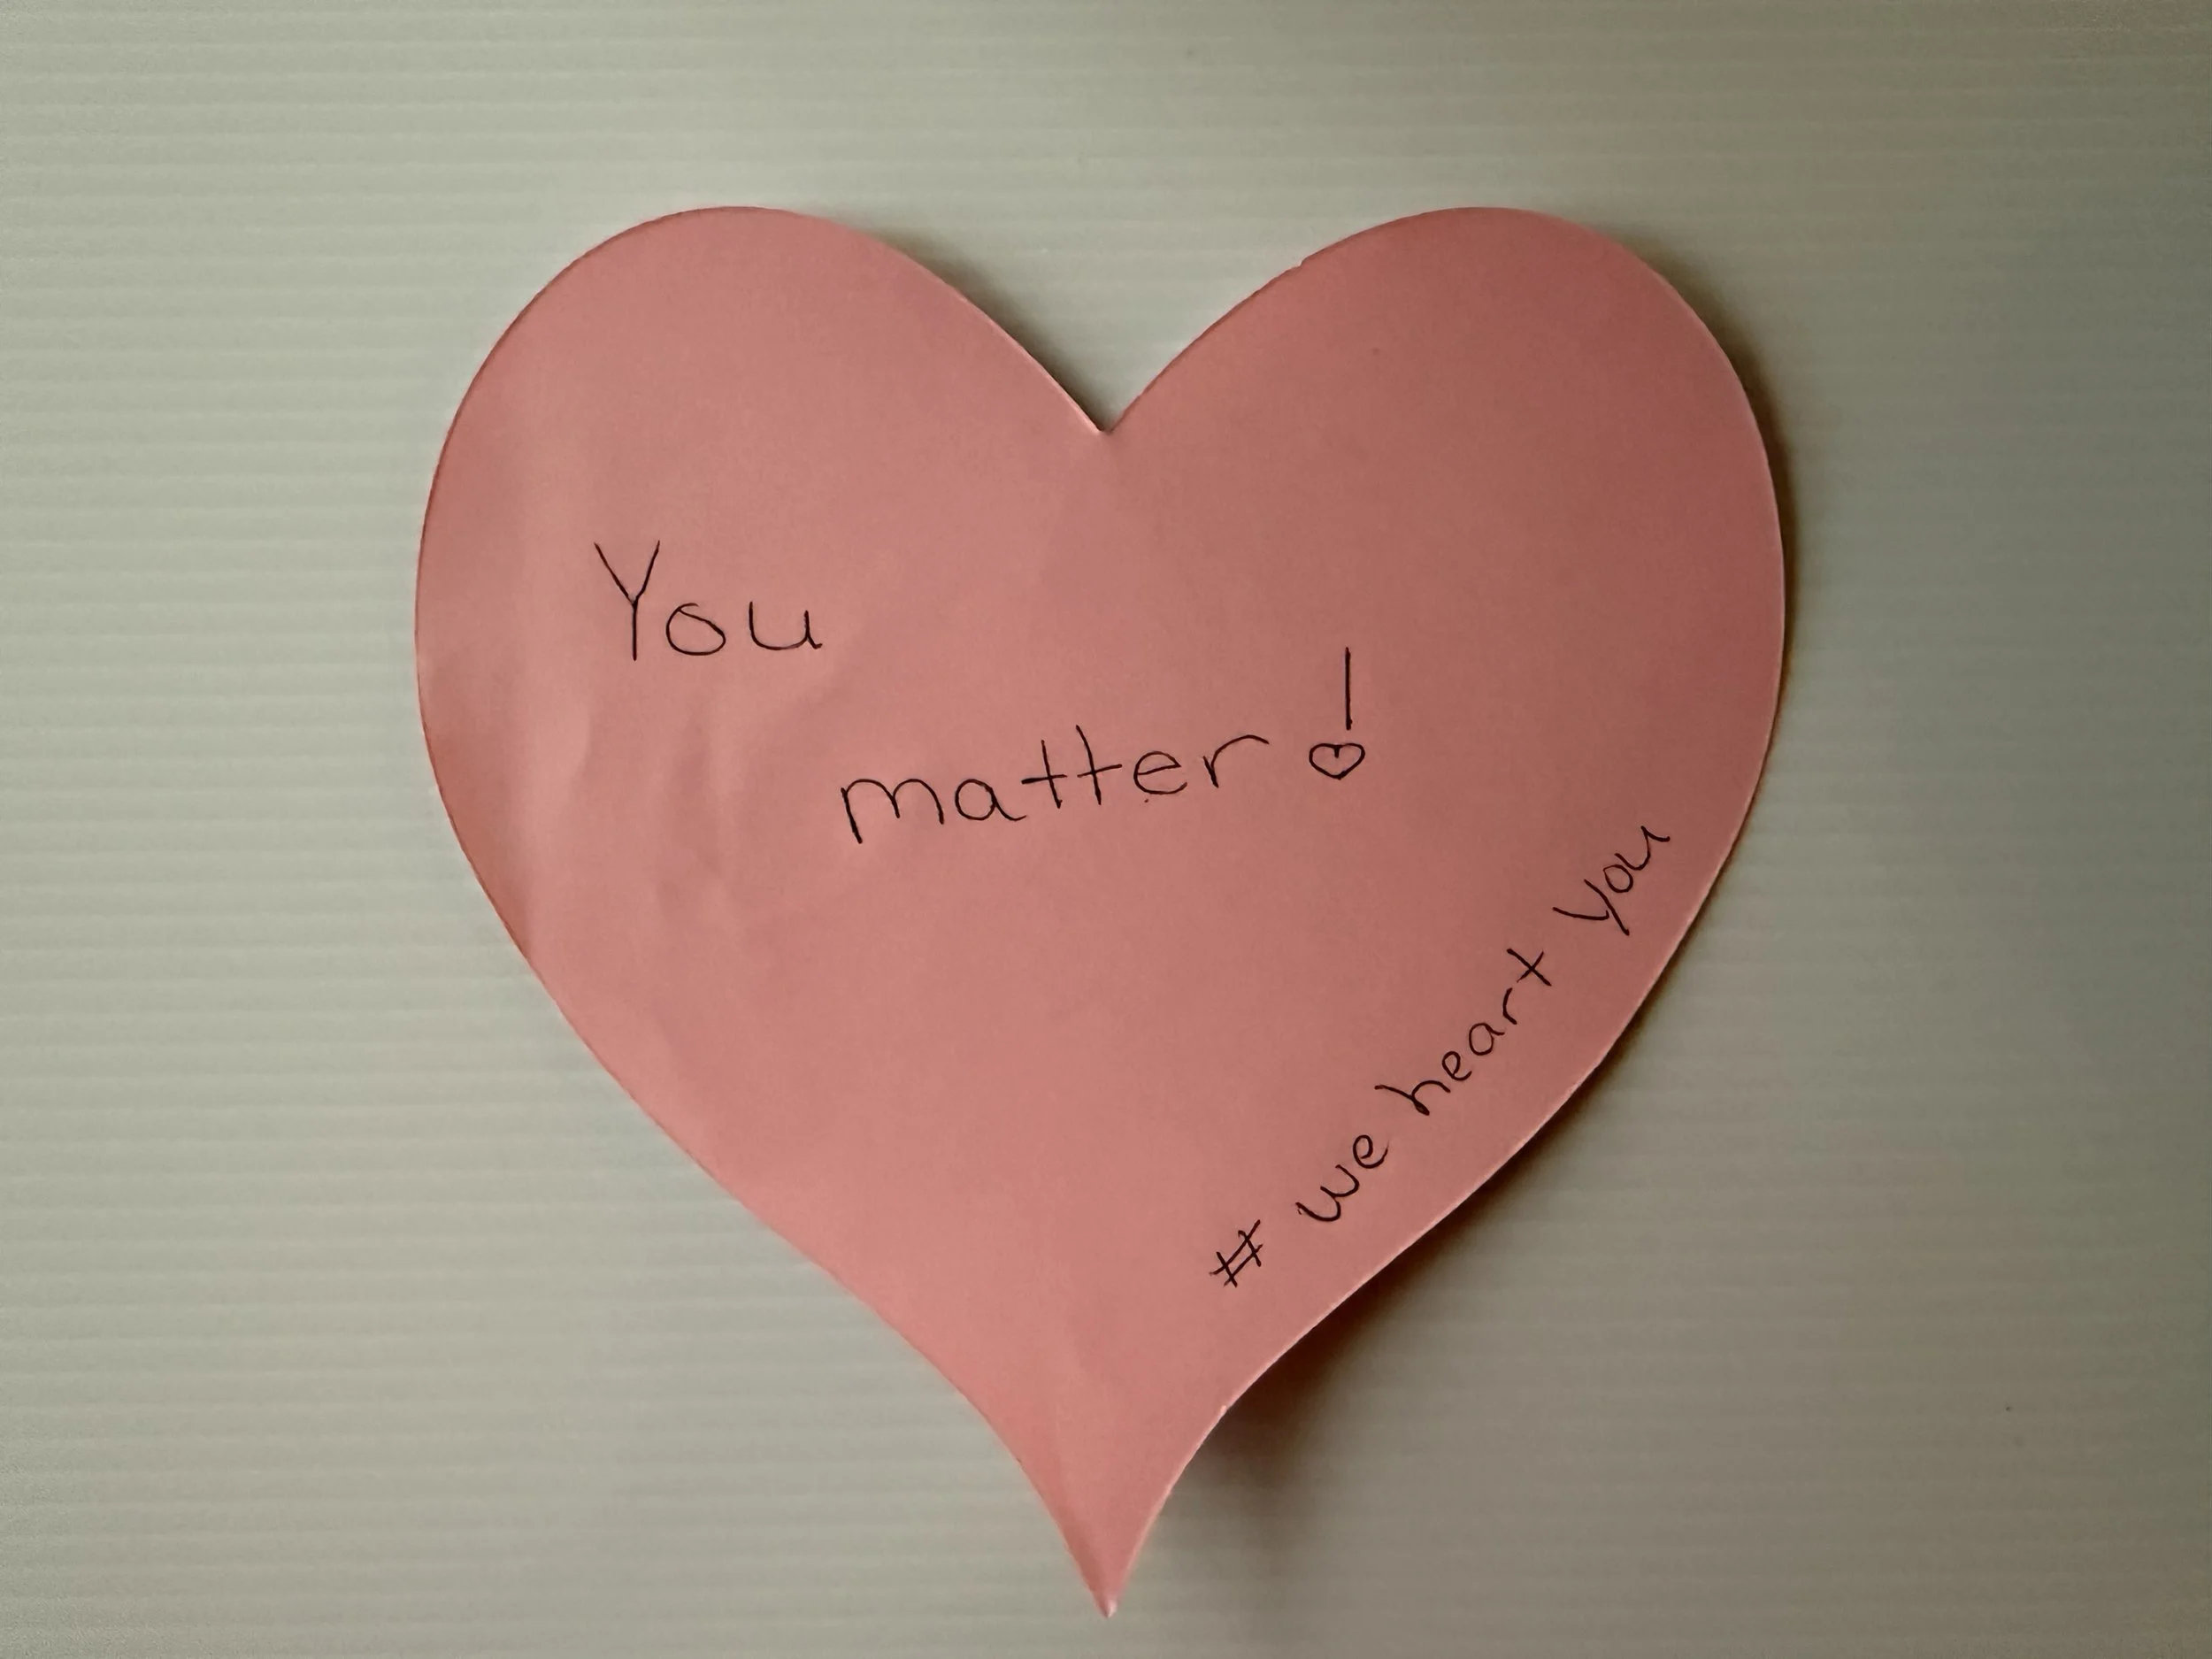 You
matter!
# we heart you